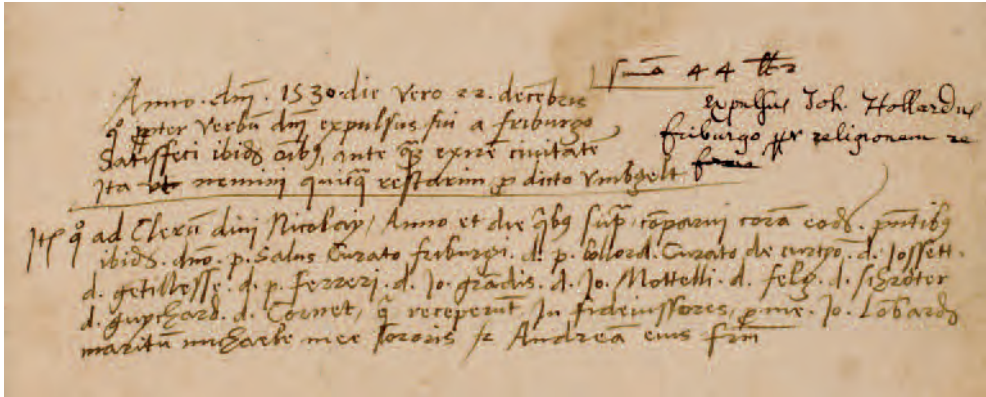 Sm̄a 44 lb
Anno. dn̄i. 1530. die vero 22. decēbris
qº ꝓpter verbū dn̄i expulsus fui a friburgo
Satisfeci ibidē oīb9, ante q̄ȝ exire civitatē
Ita ut nemini quicq̄ restarim ꝓ dicto Vmbgelt.
Expulsus Joh. Hollardus
friburgo ꝓpter religionem re
Itē qº ad Clerū divi Nicolay, Anno et die q̄b9 sup̄. cōparui corā eodē. pn̄tib9
ibidē. dn̄o. p. Salus Curato friburgi. d. p. bollord. Curato de . d. Jossett.
d. getillesse. d. p. Ferreri. d. Jo. grādis. d. Jo. Mottelli. d. felg. d. schröter
d. guychard. d. Cornet, q̄ receperūt In fideiussores, ꝓ me. Jo. Lōbardū
maritū michaele mee sororis & Andreā eius frēm